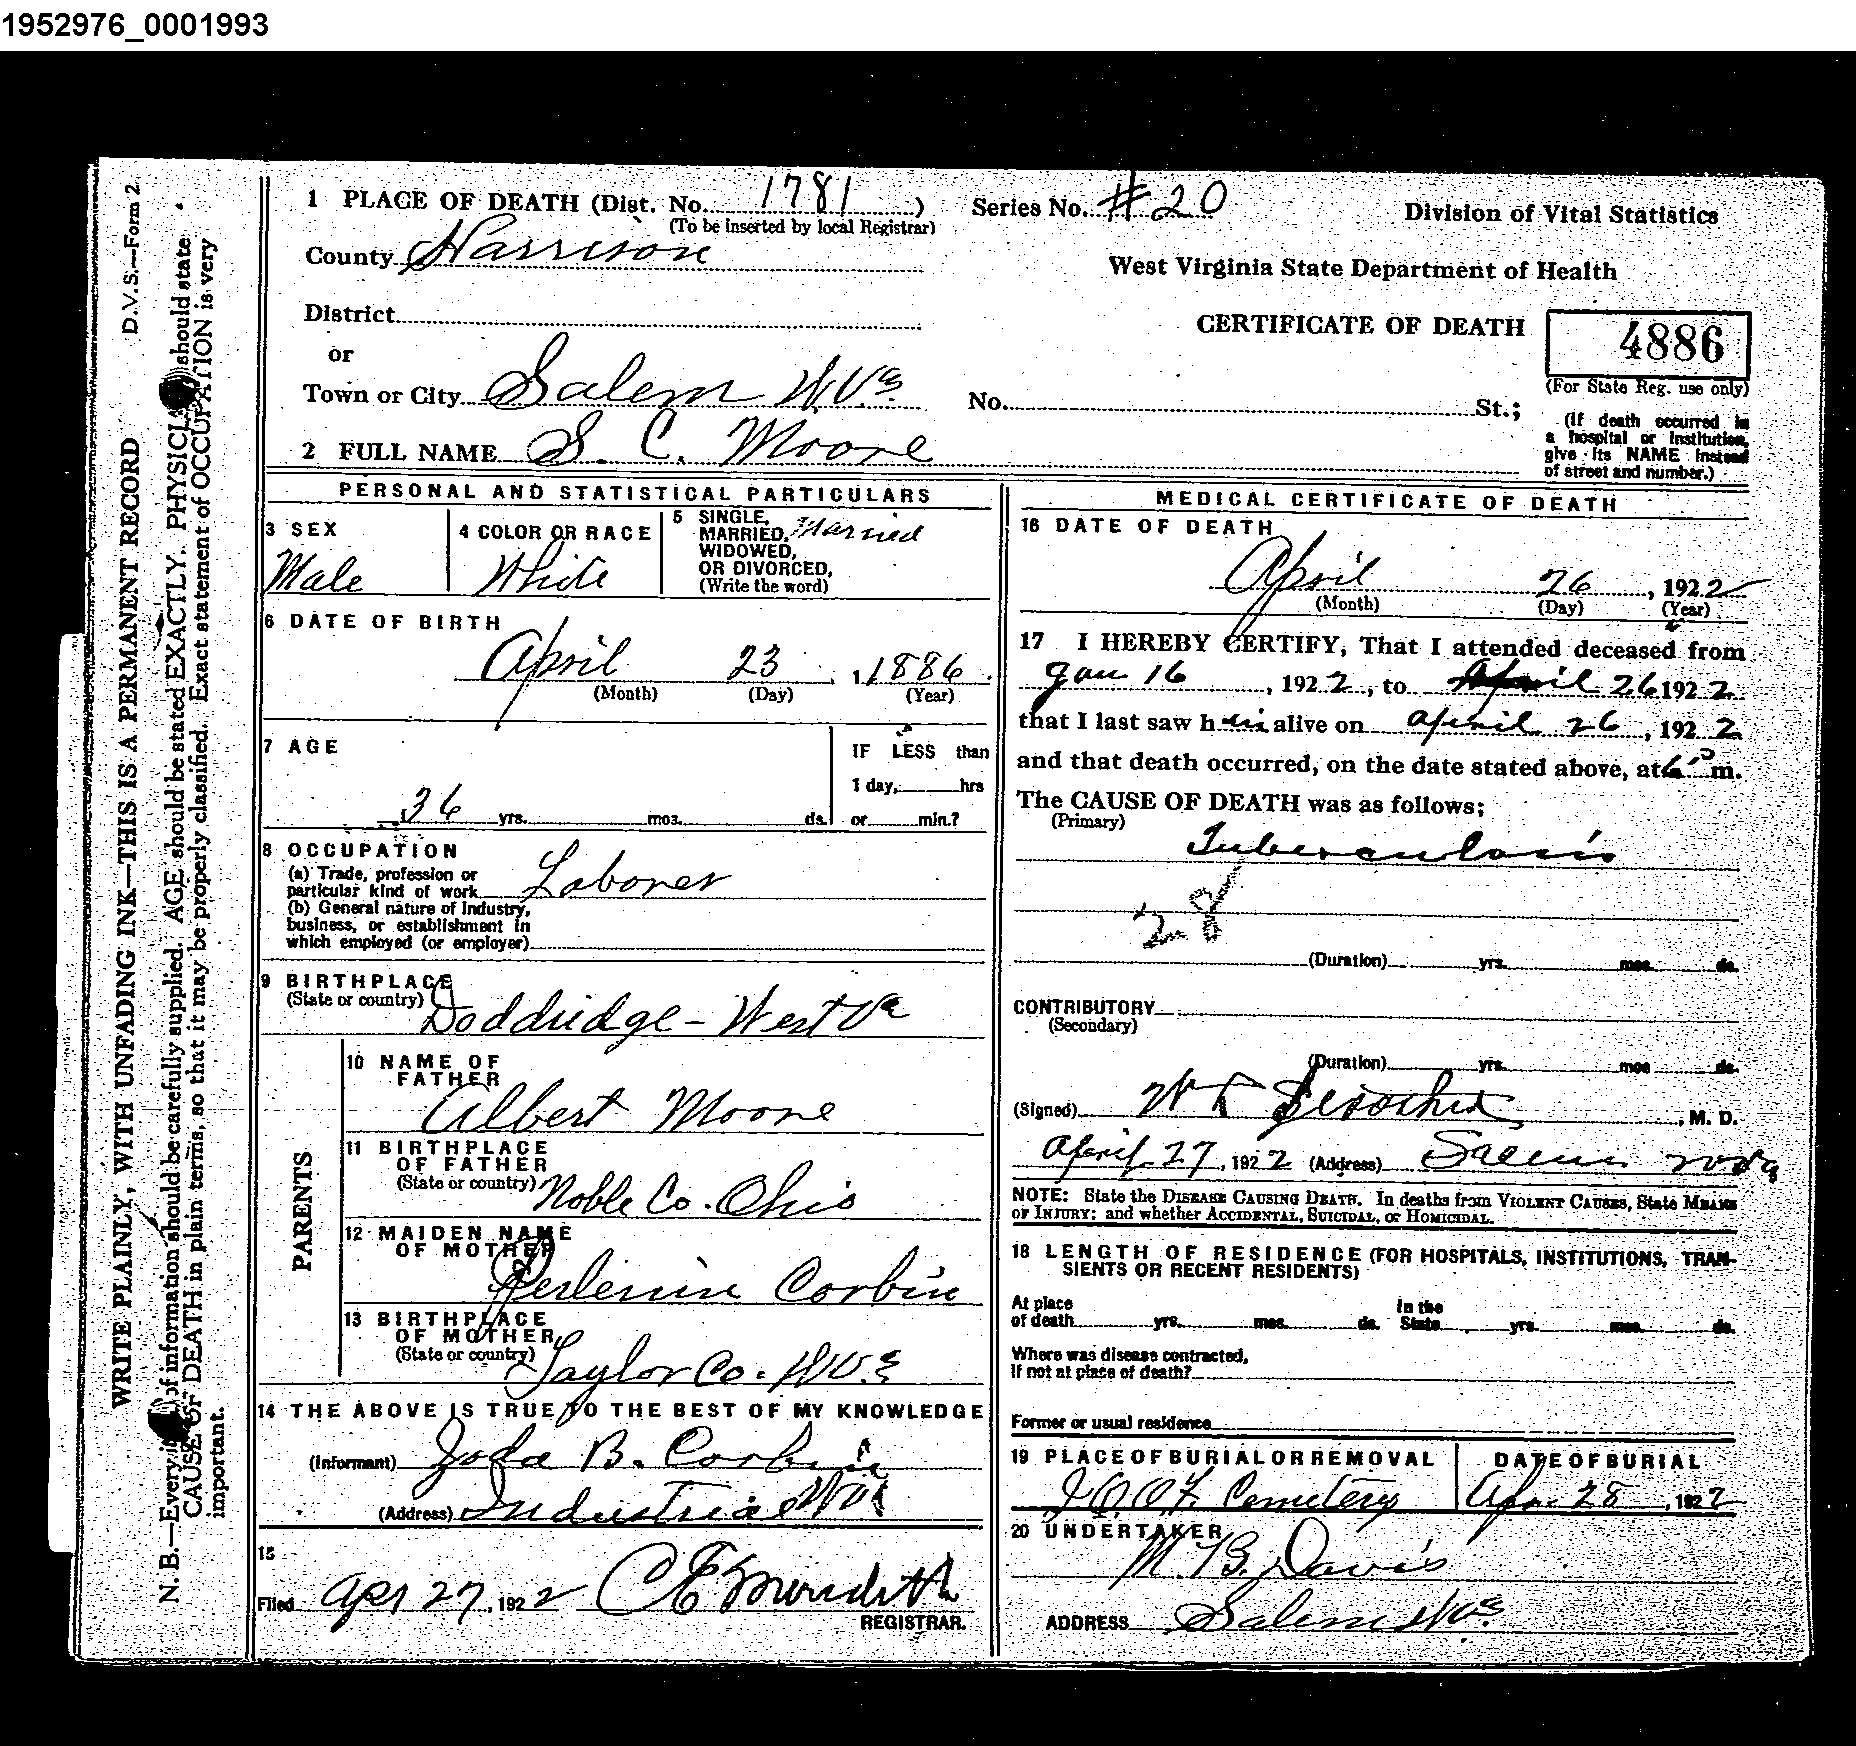 1952976_0001993
D.V.S.—Form 2
WRITE PLAINLY, WITH UNFADING INK—THIS IS A PERMANENT RECORD
N. B.—Every of information should be carefully supplied. AGE should be stated EXACTLY. PHYSICI should state
CAUSE OF DEATH in plain terms, so that it may be properly classified. Exact statement of OCCUPATION is very
important.
1 PLACE OF DEATH (Dist. No. 1781) Series No. #20
(To be inserted by local Registrar)
Division of Vital Statistics
County Harrison
West Virginia State Department of Health
District
CERTIFICATE OF DEATH 4886
(For State Reg. use only)
or
Town or City Salem W.Va. No. St.;
(If death occurred in
a hospital or institution,
give its NAME instead
of street and number.)
2 FULL NAME S. C. Moore
PERSONAL AND STATISTICAL PARTICULARS
3 SEX
Male
4 COLOR OR RACE
White
5 SINGLE,
MARRIED, Married
WIDOWED,
OR DIVORCED,
(Write the word)
6 DATE OF BIRTH
April 23, 1886
(Month) (Day) (Year)
7 AGE
36 yrs. mos. ds.
IF LESS than
1 day, hrs
or min.?
8 OCCUPATION
(a) Trade, profession or
particular kind of work Laborer
(b) General nature of Industry,
business, or establishment in
which employed (or employer)
9 BIRTHPLACE
(State or country) Doddridge - West Va
PARENTS
10 NAME OF
FATHER
Albert Moore
11 BIRTHPLACE
OF FATHER
(State or country) Noble Co. Ohio
12 MAIDEN NAME
OF MOTHER
Corbin
13 BIRTHPLACE
OF MOTHER
(State or country) Taylor Co. W.Va
14 THE ABOVE IS TRUE TO THE BEST OF MY KNOWLEDGE
(Informant) B. Corbin
(Address) Industrial W Va
15
Filed Apr 27, 1922 C E Meredith
REGISTRAR.
MEDICAL CERTIFICATE OF DEATH
16 DATE OF DEATH
April 26, 1922
(Month) (Day) (Year)
17 I HEREBY CERTIFY, That I attended deceased from
Jan 16, 1922, to April 26 1922
that I last saw him alive on April 26, 1922
and that death occurred, on the date stated above, at 6 m.
The CAUSE OF DEATH was as follows:
(Primary)
Tuberculosis
(Duration) yrs. mos. ds.
CONTRIBUTORY
(Secondary)
(Duration) yrs. mos ds.
(Signed) , M. D.
April 27, 1922 (Address) Salem W Va
NOTE: State the DISEASE CAUSING DEATH. In deaths from VIOLENT CAUSES, State MEANS
OF INJURY; and whether ACCIDENTAL, SUICIDAL, or HOMICIDAL.
18 LENGTH OF RESIDENCE (FOR HOSPITALS, INSTITUTIONS, TRAN-
SIENTS OR RECENT RESIDENTS)
At place
of death yrs. mos. ds.
In the
State yrs. mos. ds.
Where was disease contracted,
If not at place of death?
Former or usual residence
19 PLACE OF BURIAL OR REMOVAL
I.O.O.F. Cemetery
DATE OF BURIAL
Apr 28, 1922
20 UNDERTAKER
M. B. Davis
ADDRESS Salem W.Va.